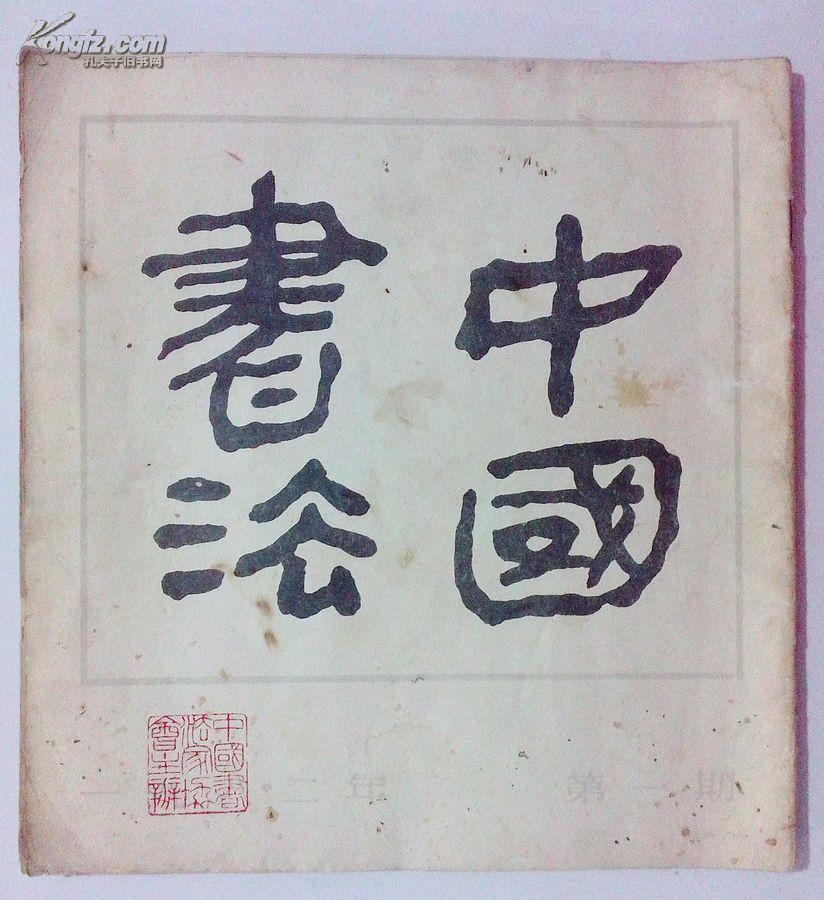 Kongfz.com
孔夫子旧书网
中國
書法
中國書
法家協
會主辦
一 二年 第一期